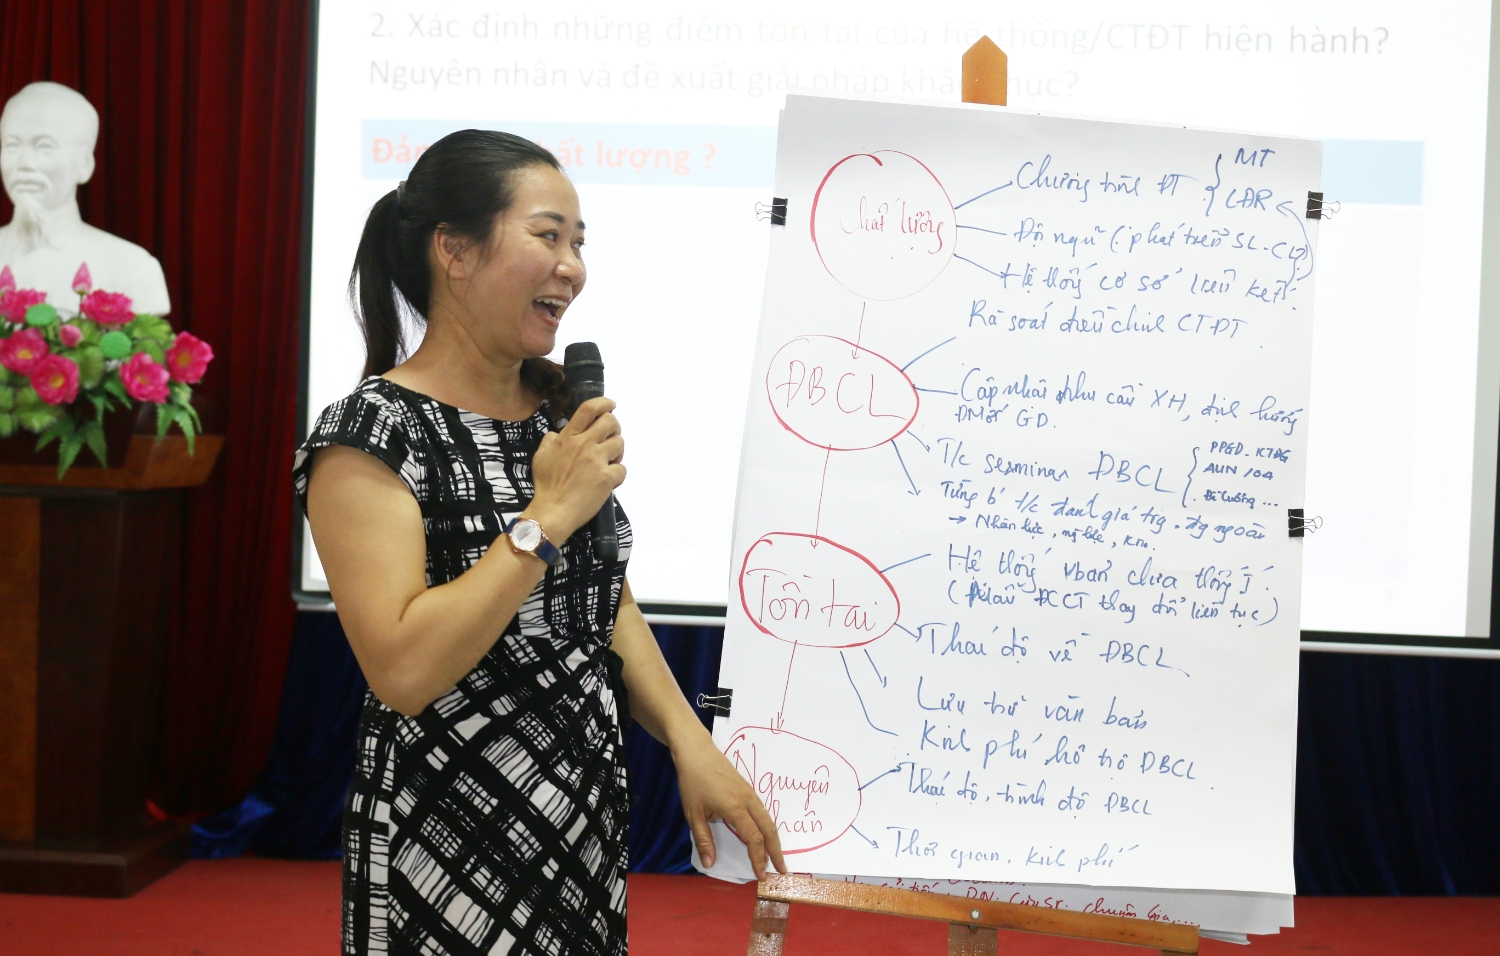 2. Xác định những điểm tồn tại của hệ thống/CTĐT hiện hành?
Nguyên nhân và đề xuất giải pháp khắc phục?
Đảm chất lượng ?
Chất lượng
Chương trình ĐT
MT
CĐR
Đội ngũ (phát triển SL-CL)
Hệ thống cơ sở liên kết
Rà soát điều chỉnh CTĐT
ĐBCL
Cập nhật nhu cầu XH, định hướng
ĐMới GD.
T/c seminar ĐBCL
PPGD - KTĐG
AUN, 04
Đo lường ...
Từng b' t/c đánh giá trg - đg ngoài
→ Nhân lực, , KN.
Tồn tại
Hệ thống vbản chưa thống I.
( ĐCCT thay đổi liên tục)
Thái độ về ĐBCL
Lưu trữ văn bản
Kinh phí hỗ trợ ĐBCL
Nguyên nhân
Thái độ, trình độ ĐBCL
Thời gian, kinh phí
DN, chuyên gia...